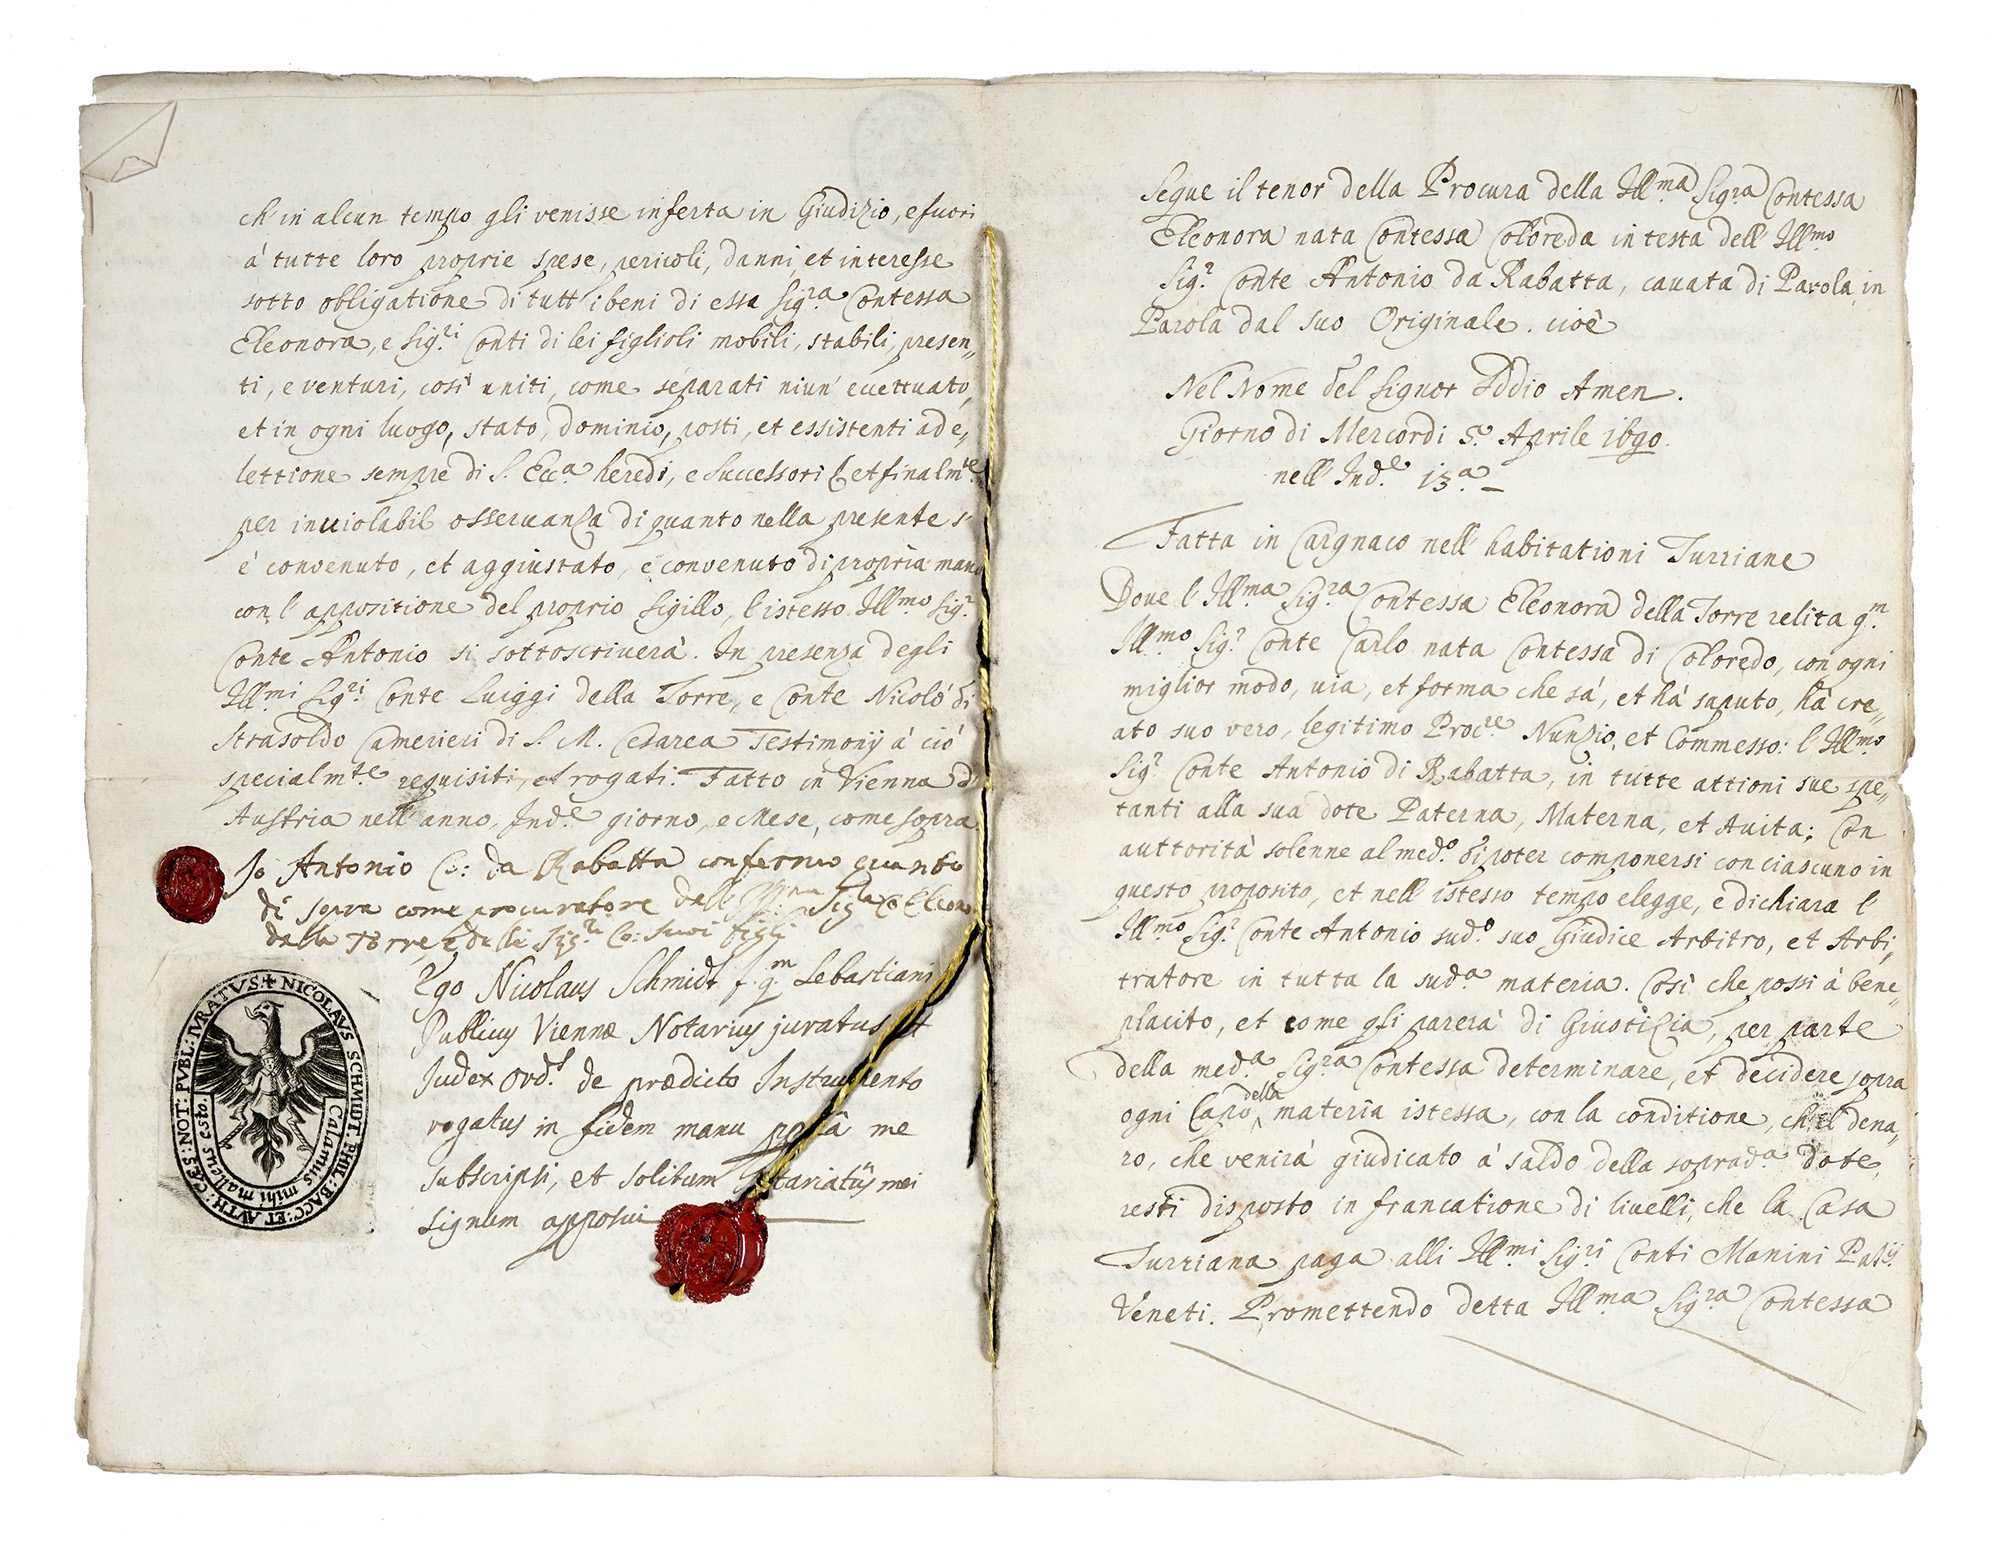 ch'in alcun tempo gli venisse inferta in Giudizio, e fuori
à tutte loro proprie spese, pericoli, danni, et interesse
sotto obligatione di tutt'i beni di essa Sig.ra Contessa
Eleonora, e Sig.ri Conti di lei figlioli mobili, stabili, presen„
ti, e venturi, così uniti, come separati niun' eccettuato,
et in ogni luogo, stato, dominio, posti, et essistenti ad e„
lettione sempre di S. Ecc.a heredi, e Successori et finalm.te
per inviolabil osservanza di quanto nella presente s'
è convenuto, et aggiustato, e convenuto di propria mano
con l'appositione del proprio Sigillo, l'istesso Ill.mo Sig.r
Conte Antonio si sottoscriverà. In presenza degli
Ill.mi Sig.ri Conte Luiggi della Torre, e Conte Nicolò di
Strasoldo Camerieri di S. M. Cesarea Testimonij à ciò
specialm.te requisiti, et rogati. Fatto in Vienna d'
Austria nell'anno, Ind.e giorno, e Mese, come sopra
Io Antonio Co: da Rabatta confermo quanto
di sopra come procuratore dell Ill.ma Sig.ra Co Eleono
della Torre, e delli Sig.ri Co: suoi figli
Ego Nicolaus Schmidt f. q.m Sebastiani
Publicus Viennæ Notarius juratus et
Judex Ord.s de prædicto Instrumento
rogatus in fidem manu pp̃iâ me
subscripsi, et solitum Notariatûs mei
signum apposui
NICOLAVS SCHMIDT: PHIL: BACC: ET AVTH: CÆS: NOT: PVBL: IVRATVS:
Calamus mihi malleus esto.
Segue il tenor della Procura della Ill.ma Sig.ra Contessa
Eleonora nata Contessa Coloreda in testa dell' Ill.mo
Sig.r Conte Antonio da Rabatta, cavata di Parola in
Parola dal suo Originale. cioè
Nel Nome del Signor Iddio Amen.
Giorno di Mercordì 5.º Aprile 1690.
nell' Ind.e 13.a
Fatta in Cargnaco nell' habitationi Turriane
Dove l'Ill.ma Sig.ra Contessa Eleonora della Torre relita q.m
Ill.mo Sig.r Conte Carlo nata Contessa di Coloredo, con ogni
miglior modo, via, et forma che sà, et hà saputo, hà cre„
ato suo vero, legitimo Proc.re Nunzio, et Commesso: l'Ill.mo
Sig.r Conte Antonio di Rabatta, in tutte attioni sue spe„
tanti alla sua dote Paterna, Materna, et Avita; Con
auttorità solenne al med.o di poter componersi con ciascuno in
questo proposito, et nell'istesso tempo elegge, e dichiara l'
Ill.mo Sig.r Conte Antonio sud.o suo Giudice Arbitro, et Arbi„
tratore in tutta la sud.a materia. Così che possi à bene„
placito, et come gli parerà di Giustizia, per parte
della med.a Sig.ra Contessa determinare, et decidere sopra
ogni Capo della materia istessa, con la conditione, ch'el dena„
ro, che venirà giudicato à saldo della soprad.a dote,
resti disposto in francatione di livelli, che la Casa
Turriana paga alli Ill.mi Sig.ri Conti Manini Pat.ij
Veneti. Promettendo detta Ill.ma Sig.ra Contessa